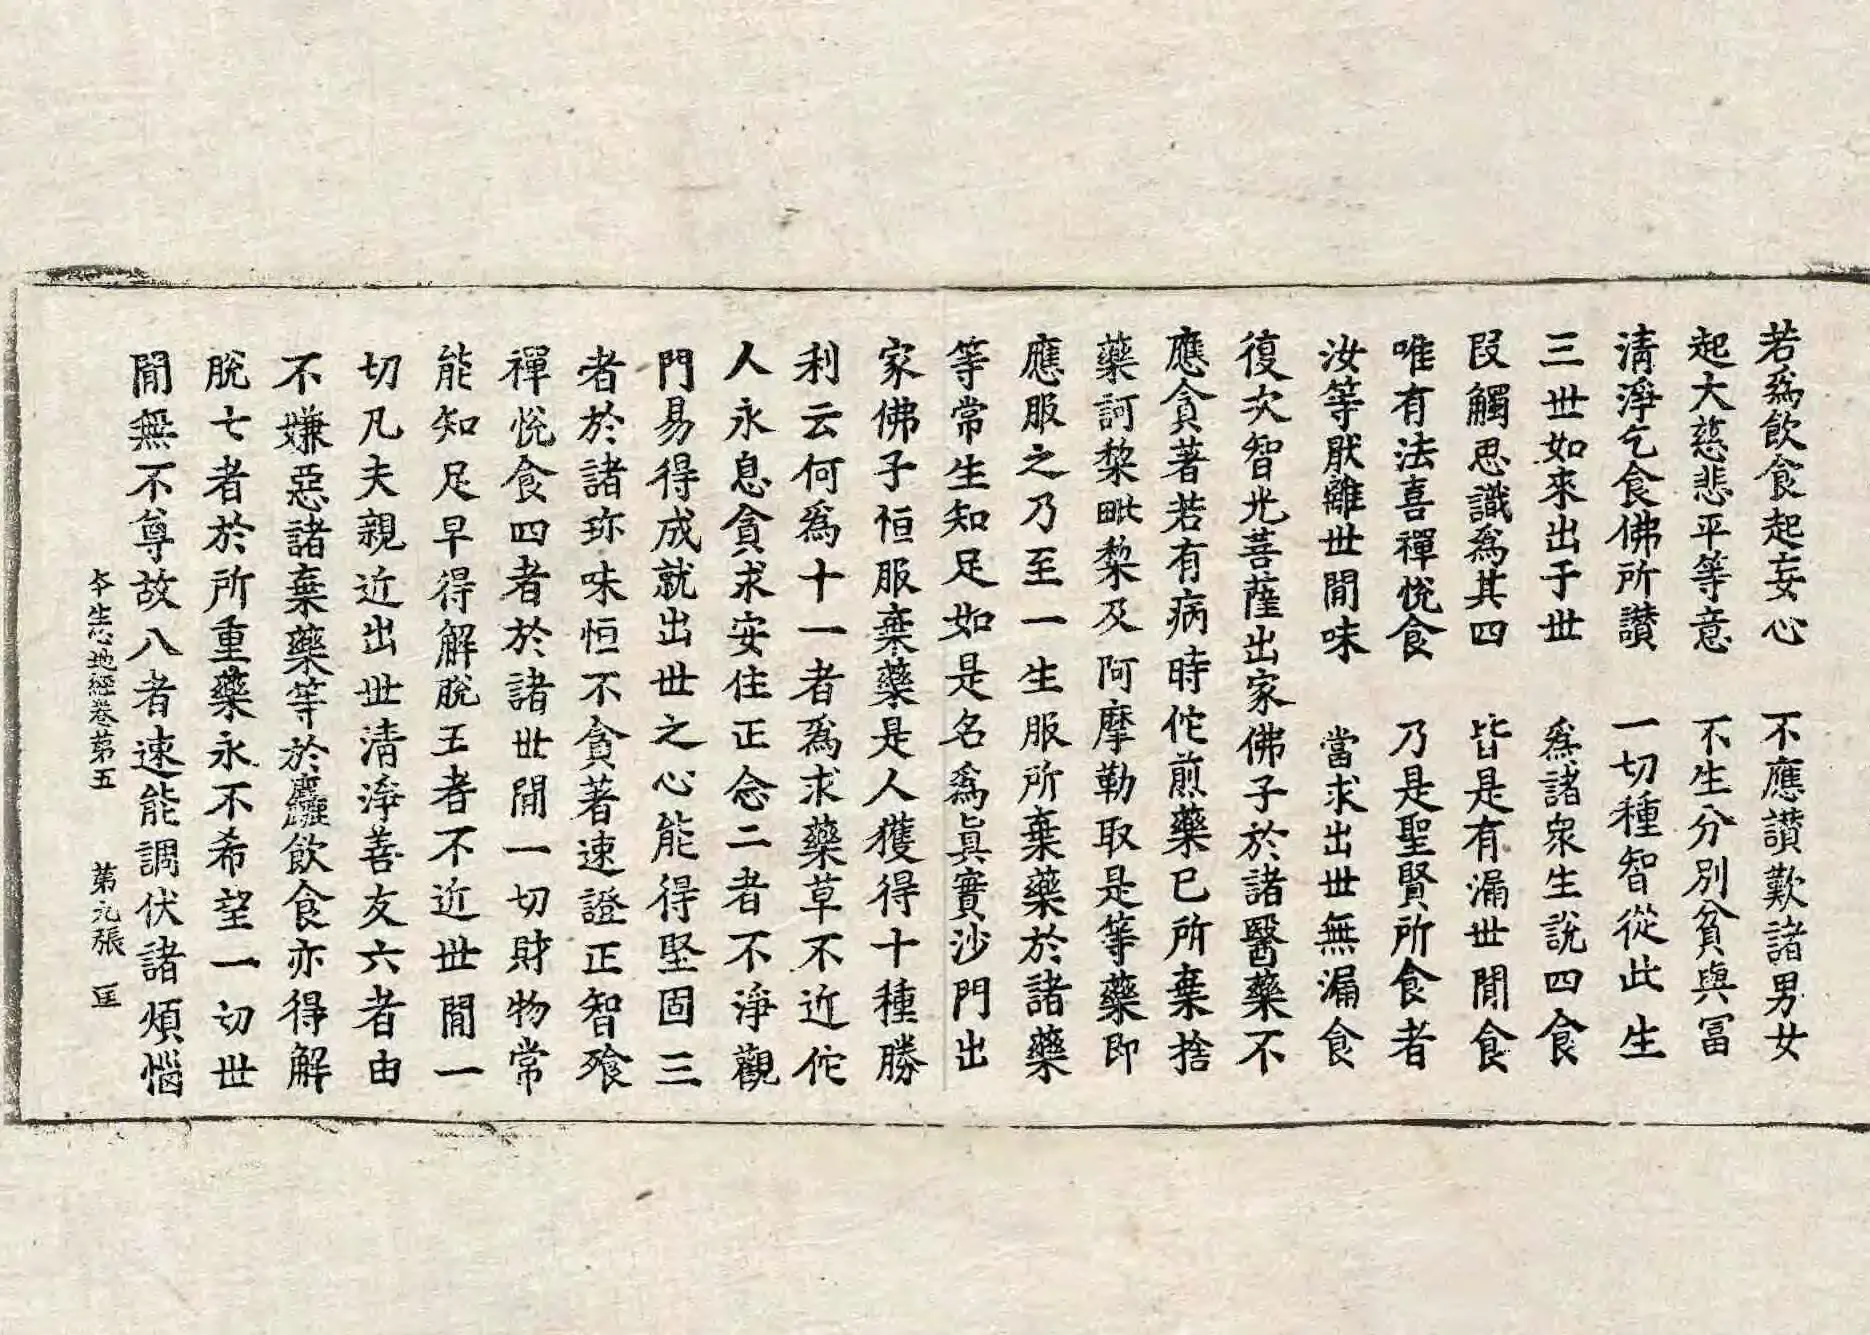 若爲飮食起妄心　不應讃歎諸男女
起大慈悲平等意　不生分別貧與冨
清淨乞食佛所讃　一切種智從此生
三世如來出于世　爲諸衆生說四食
段觸思識爲其四　皆是有漏世閒食
唯有法喜禪悅食　乃是聖賢所食者
汝等厭離世閒味　當求出世無漏食
復次智光菩薩出家佛子於諸醫藥不
應貪著若有病時佗煎藥已所棄捨
藥訶黎毗黎及阿摩勒取是等藥即
應服之乃至一生服所棄藥於諸藥
等常生知足如是名爲眞實沙門出
家佛子恒服棄藥是人獲得十種勝
利云何爲十一者爲求藥草不近佗
人永息貪求安住正念二者不淨觀
門易得成就出世之心能得堅固三
者於諸珎味恒不貪著速證正智飱
禪悅食四者於諸世閒一切財物常
能知足早得解脫五者不近世閒一
切凡夫親近出世清淨善友六者由
不嫌惡諸棄藥等於麤飮食亦得解
脫七者於所重藥永不希望一切世
閒無不尊故八者速能調伏諸煩惱
本生心地經卷苐五　苐九張　匡